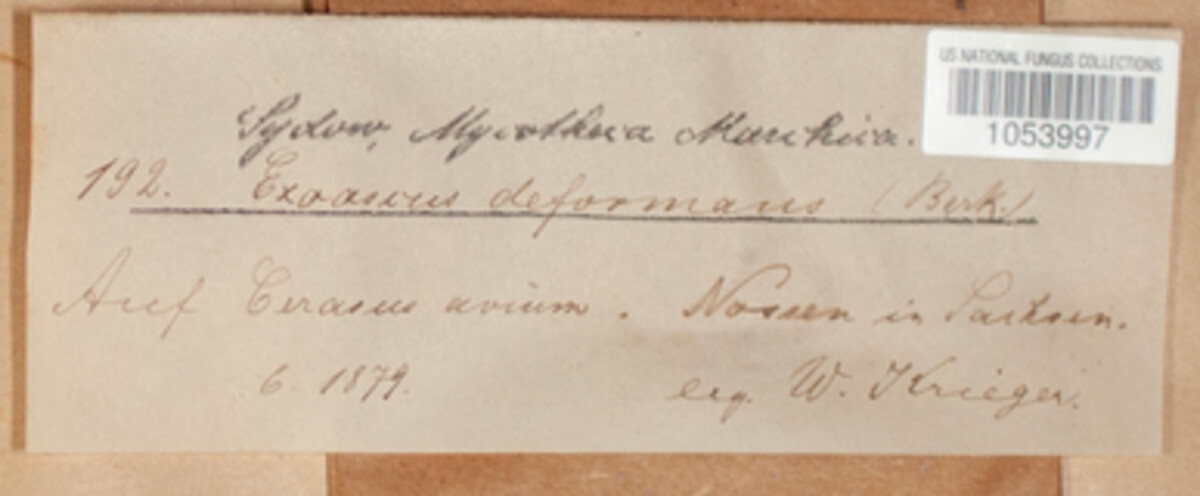 US NATIONAL FUNGUS COLLECTIONS
1053997
Sydow, Mycotheca Marchica.
192. Exoascus deformans (Berk.)
Auf Cerasus avium. Nossen in Sachsen.
6. 1879. leg. W. Krieger.